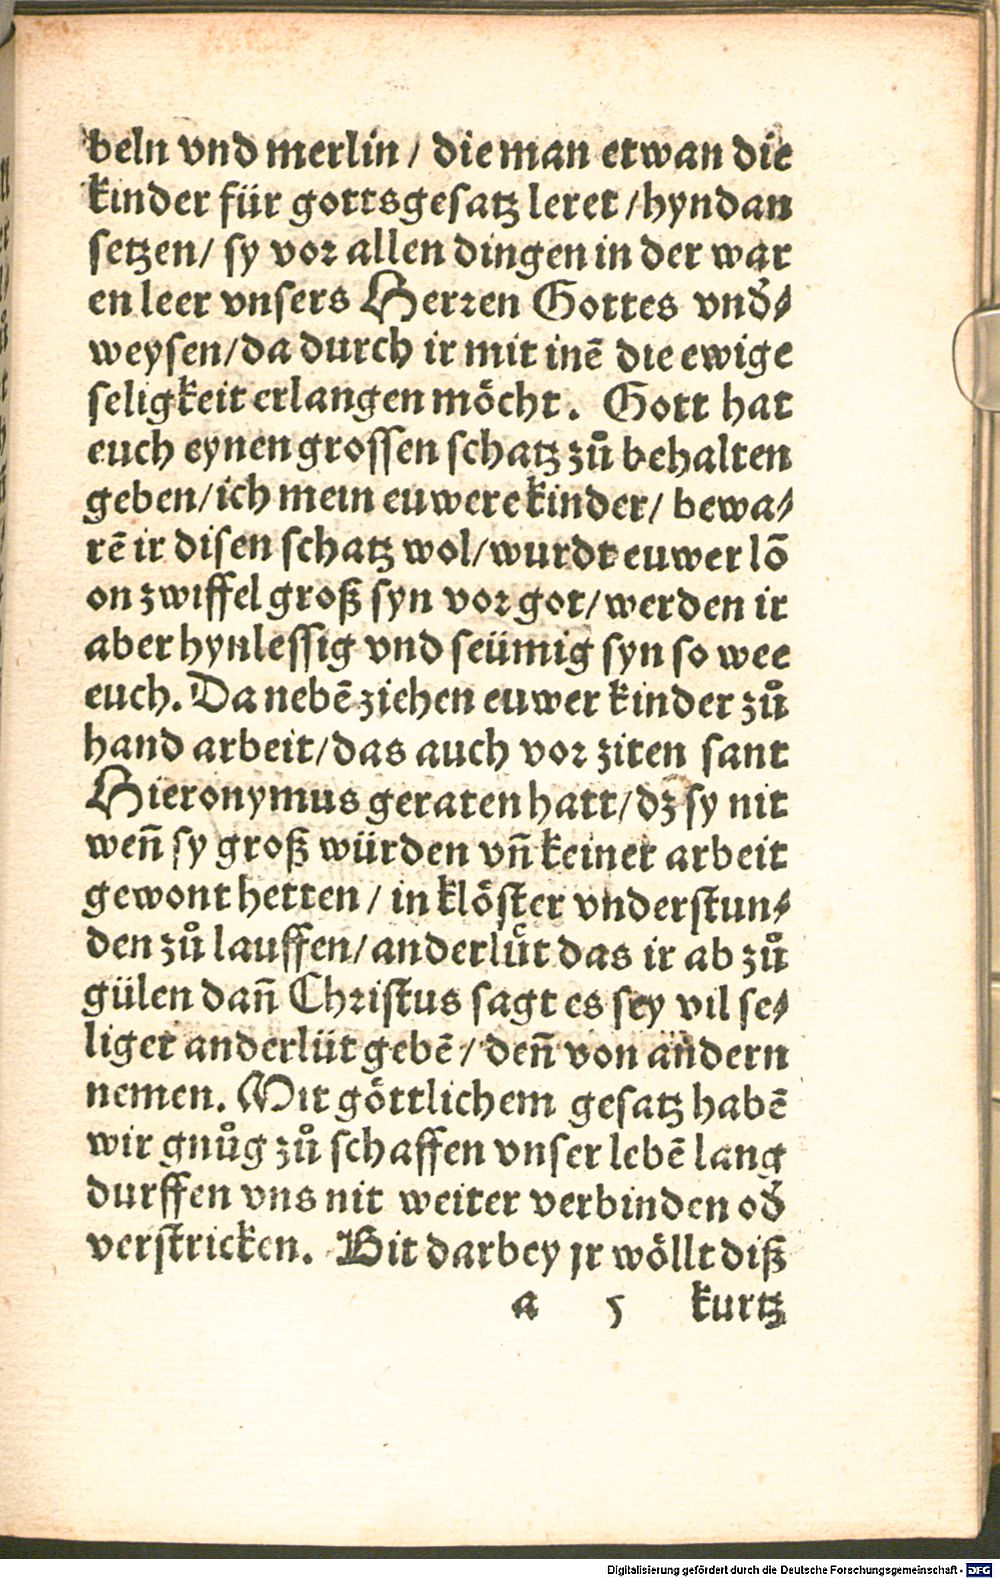 beln vnd merlin / die man etwan die
kinder für gottsgesatz leret / hyndan
setzen / sy vor allen dingen in der war
en leer vnsers Herren Gottes vnd̕⸗
weysen / da durch ir mit inē die ewige
seligkeit erlangen möcht. Gott hat
euch eynen grossen schatz zů behalten
geben / ich mein euwere kinder / bewa⸗
rē ir disen schatz wol / wurdt euwer lō
on zwiffel groß syn vor got / werden ir
aber hynlessig vnd seümig syn so wee
euch. Da nebē ziehen euwer kinder zů
hand arbeit / das auch vor ziten sant
Hieronymus geraten hatt / dz sy nit
weñ sy groß würden vñ keiner arbeit
gewont hetten / in klöster vnderstun⸗
den zů lauffen / ander lüt das ir ab zů
gülen dañ Christus sagt es sey vil se⸗
liger ander lüt gebē / deñ von andern
nemen. Mit göttlichem gesatz habē
wir gnůg zů schaffen vnser lebē lang
durffen vns nit weiter verbinden od̕
verstricken. Bit darbey jr wöllt diß
a 5 kurtz
Digitalisierung gefördert durch die Deutsche Forschungsgemeinschaft - DFG